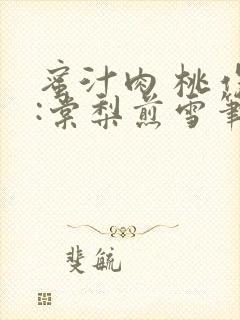 蜜汁肉桃作
:棠梨煎雪笔
斐毓